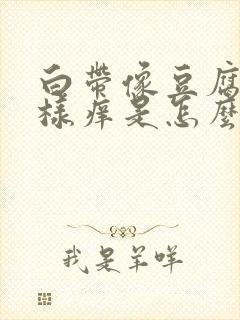 白带像豆腐
样痒是怎麼
我是羊咩